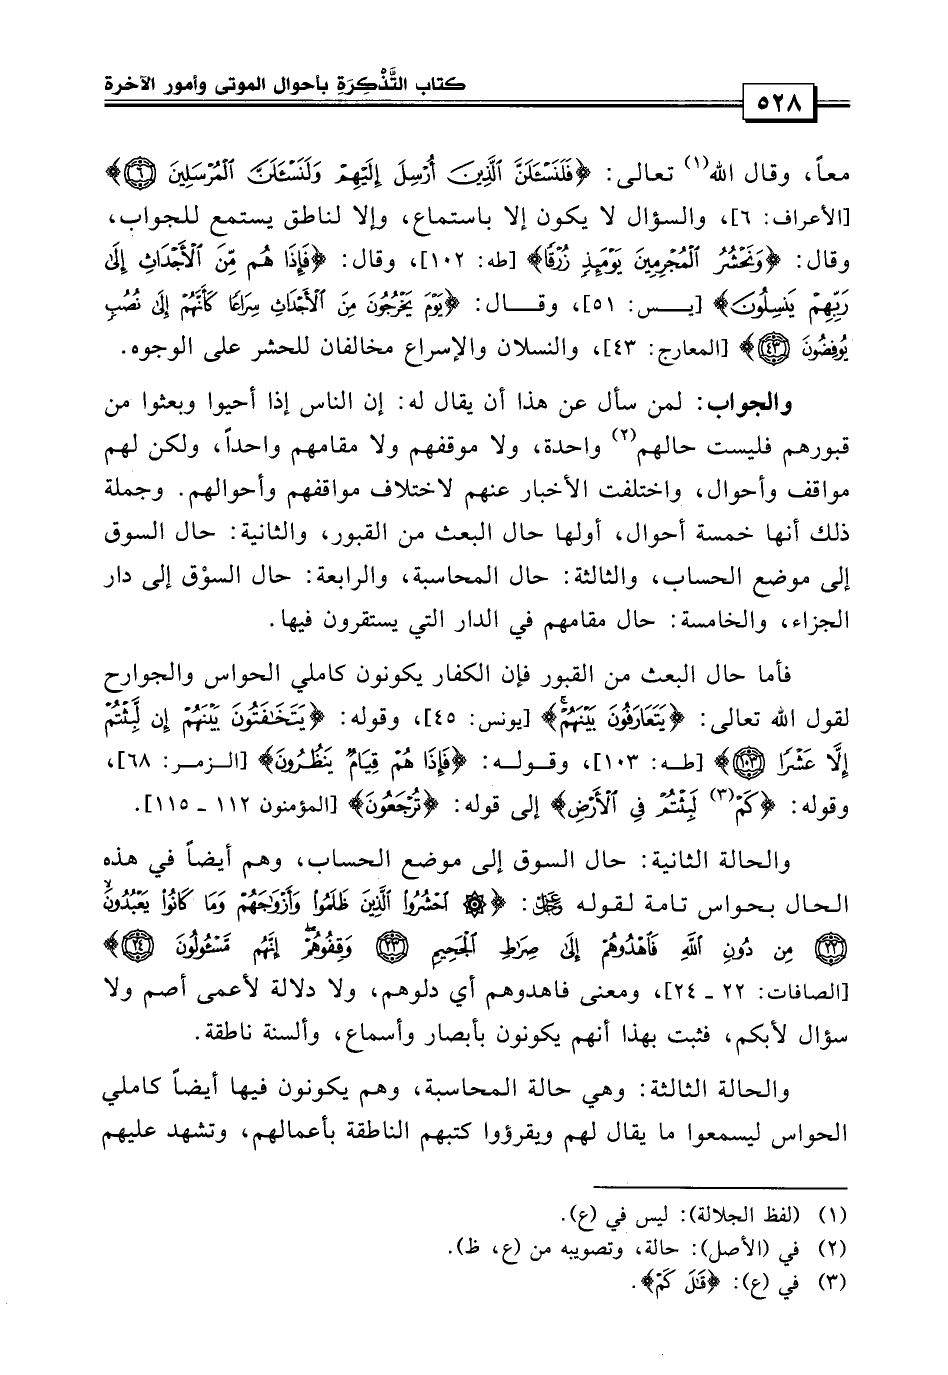 كتاب التَّذْكِرَةِ بأحوال الموتى وأمور الآخرة
٥٢٨
معاً، وقال الله(١) تعالى: ﴿فَلَنَسْـَٔلَنَّ الَّذِينَ أُرْسِلَ إِلَيْهِمْ وَلَنَسْـَٔلَنَّ الْمُرْسَلِينَ ٦﴾
[الأعراف: ٦]، والسؤال لا يكون إلا باستماع، وإلا لناطق يستمع للجواب،
وقال: ﴿وَنَحْشُرُ الْمُجْرِمِينَ يَوْمَئِذٍ زُرْقًا﴾ [طه: ١٠٢]، وقال: ﴿فَإِذَا هُم مِّنَ الْأَجْدَاثِ إِلَىٰ
رَبِّهِمْ يَنسِلُونَ﴾ [يـس: ٥١]، وقـال: ﴿يَوْمَ يَخْرُجُونَ مِنَ الْأَجْدَاثِ سِرَاعًا كَأَنَّهُمْ إِلَىٰ نُصُبٍ
يُوفِضُونَ ٤٣﴾ [المعارج: ٤٣]، والنسلان والإسراع مخالفان للحشر على الوجوه.
والجواب: لمن سأل عن هذا أن يقال له: إن الناس إذا أحيوا وبعثوا من
قبورهم فليست حالهم(٢) واحدة، ولا موقفهم ولا مقامهم واحداً، ولكن لهم
مواقف وأحوال، واختلفت الأخبار عنهم لاختلاف مواقفهم وأحوالهم. وجملة
ذلك أنها خمسة أحوال، أولها حال البعث من القبور، والثانية: حال السوق
إلى موضع الحساب، والثالثة: حال المحاسبة، والرابعة: حال السوْق إلى دار
الجزاء، والخامسة: حال مقامهم في الدار التي يستقرون فيها.
فأما حال البعث من القبور فإن الكفار يكونون كاملي الحواس والجوارح
لقول الله تعالى: ﴿يَتَعَارَفُونَ بَيْنَهُمْ﴾ [يونس: ٤٥]، وقوله: ﴿يَتَخَافَتُونَ بَيْنَهُمْ إِن لَّبِثْتُمْ
إِلَّا عَشْرًا ١٠٣﴾ [طـه: ١٠٣]، وقـولـه: ﴿فَإِذَا هُمْ قِيَامٌ يَنظُرُونَ﴾ [الـزمـر: ٦٨]،
وقوله: ﴿كَمْ(٣) لَبِثْتُمْ فِي الْأَرْضِ﴾ إلى قوله: ﴿تُرْجَعُونَ﴾ [المؤمنون ١١٢ ـ ١١٥].
والحالة الثانية: حال السوق إلى موضع الحساب، وهم أيضاً في هذه
الحال بحواس تامة لقوله ﷺ: ﴿۞ احْشُرُوا الَّذِينَ ظَلَمُوا وَأَزْوَاجَهُمْ وَمَا كَانُوا يَعْبُدُونَ
٢٢ مِن دُونِ اللَّهِ فَاهْدُوهُمْ إِلَىٰ صِرَاطِ الْجَحِيمِ ٢٣ وَقِفُوهُمْ إِنَّهُم مَّسْئُولُونَ ٢٤﴾
[الصافات: ٢٢ ـ ٢٤]، ومعنى فاهدوهم أي دلوهم، ولا دلالة لأعمى أصم ولا
سؤال لأبكم، فثبت بهذا أنهم يكونون بأبصار وأسماع، وألسنة ناطقة.
والحالة الثالثة: وهي حالة المحاسبة، وهم يكونون فيها أيضاً كاملي
الحواس ليسمعوا ما يقال لهم ويقرؤوا كتبهم الناطقة بأعمالهم، وتشهد عليهم
(١) (لفظ الجلالة): ليس في (ع).
(٢) في (الأصل): حالة، وتصويبه من (ع، ظ).
(٣) في (ع): ﴿قَالَ كَمْ﴾.